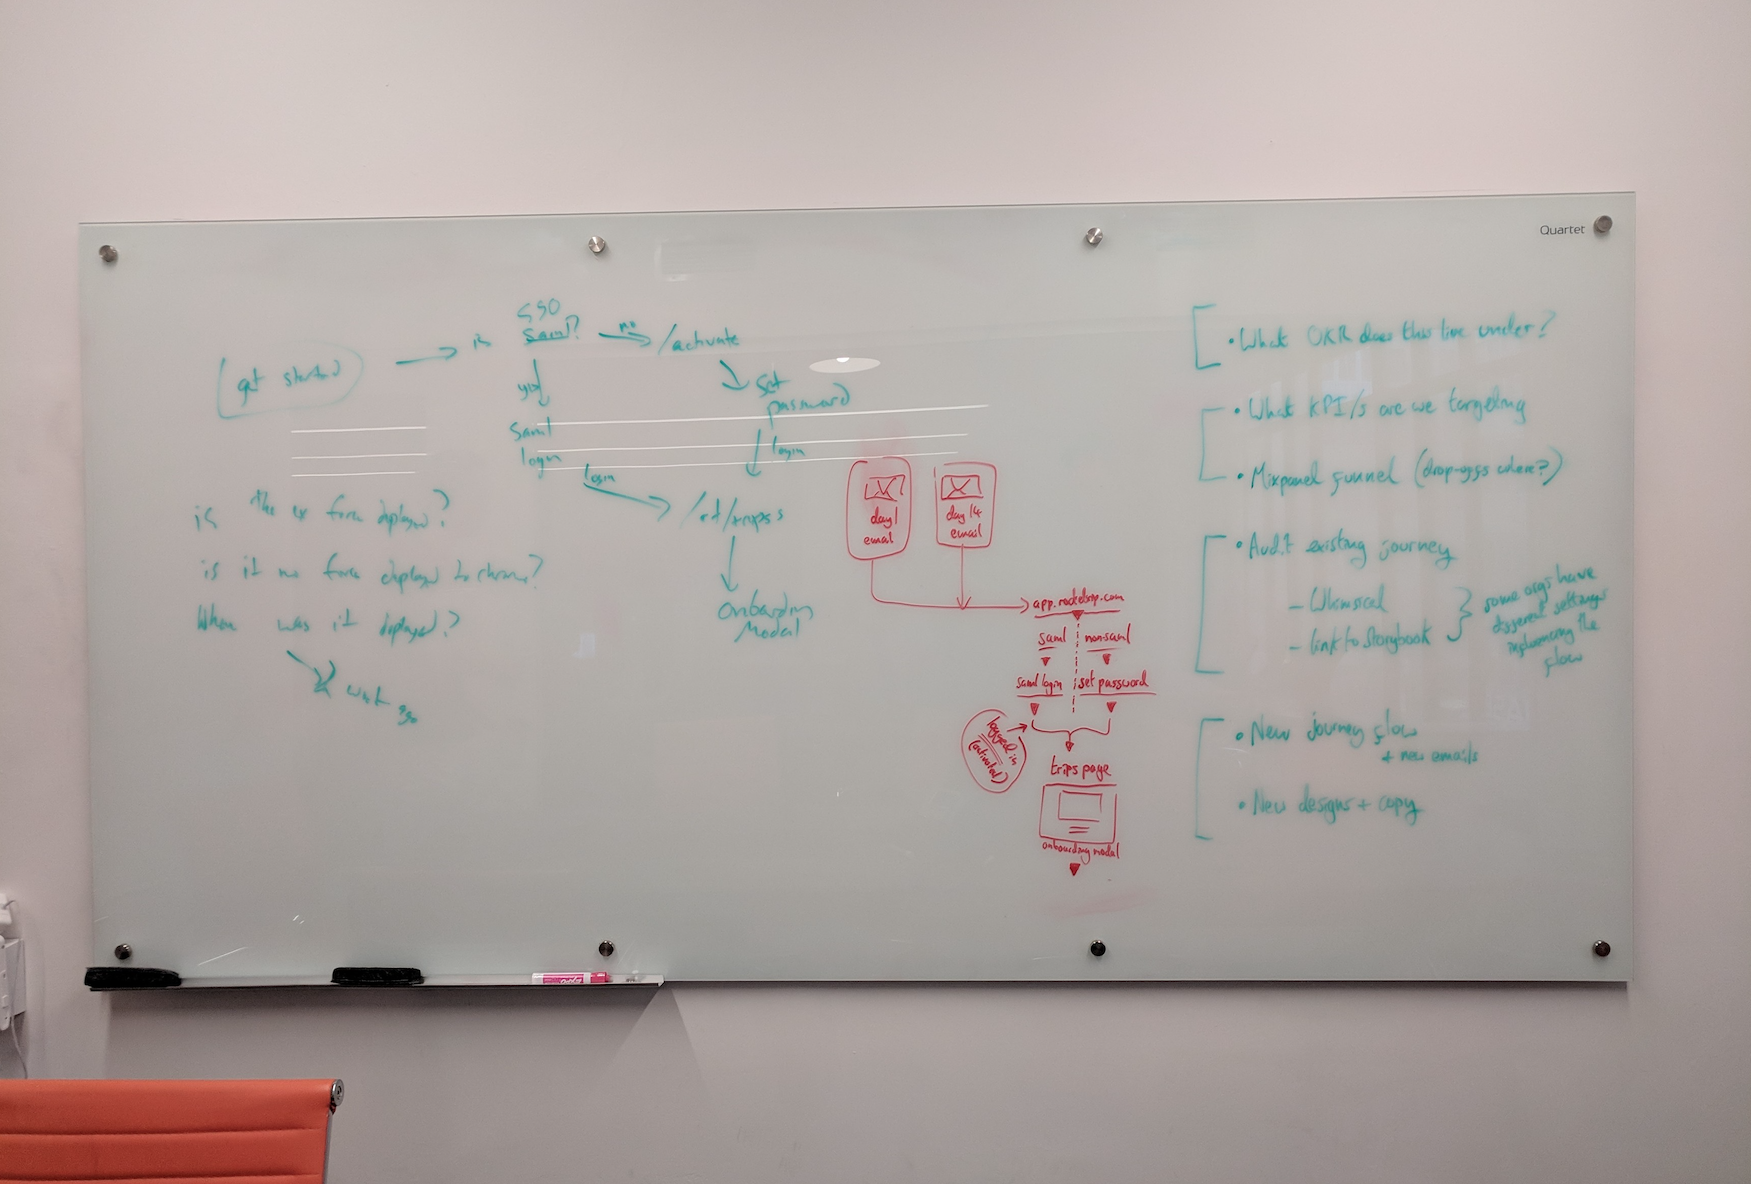 Quartet
get started
is
SSO
saml?
no
/activate
yes
saml
login
set
password
login
login
onboarding
Modal
is the ex force deployed?
is it no force deployed to chrome?
When was it deployed?
day 1
email
day 14
email
app.rocketrip.com
saml
non-saml
saml login
set password
logged in
(activated)
trips page
onboarding modal
• What OKR does this live under?
• What KPI/s are we targeting
• Mixpanel funnel (drop-offs where?)
• Audit existing journey
- Whimsical
- link to Storybook
some orgs have
different settings
implementing the
flow
• New journey flow
+ new emails
• New designs + copy